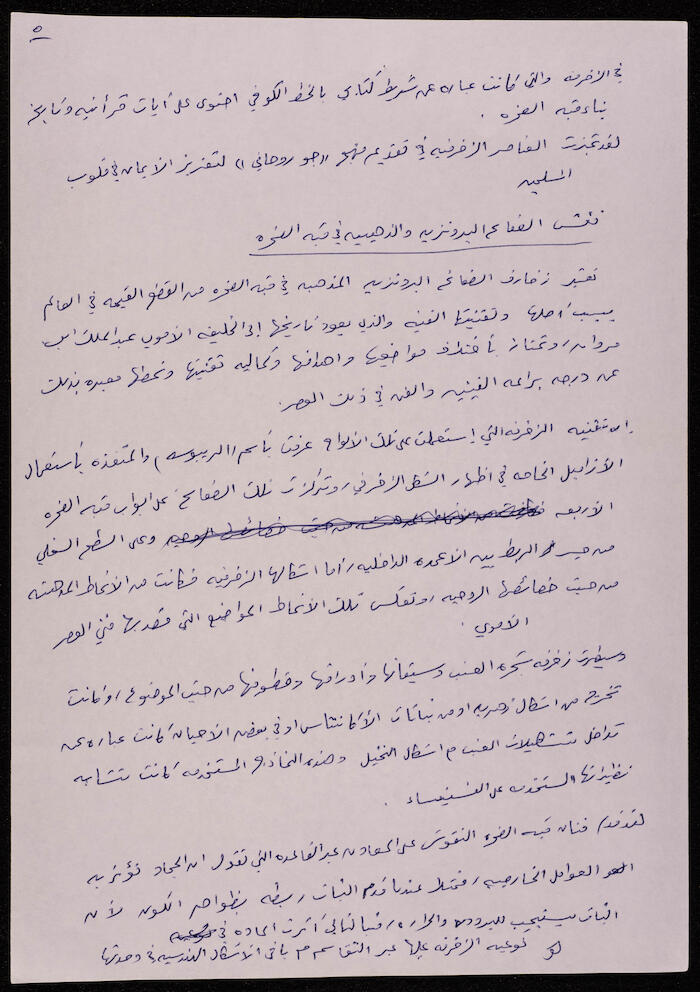 ٥
في الزخرفه والتي كانت عباره عن شريط كتابي بالخط الكوفي احتوى على آيات قرآنيه وتاريخ
بناء قبه الصخره .
لقد تميزت العناصر الزخرفيه في تقديم منهج "جو روحاني" لتعزيز الايمان في قلوب
المسلمين
نقش الصفائح البرونزيه والذهبيه في قبه الصخره
تعتبر زخارف الصفائح البرونزيه المذهبه في قبه الصخره من القطع القيمه في العالم
بسبب أصلها وتقنيتها الفنيه والذي يعود تاريخها إلى الخليفه الأموي عبد الملك ابن
مروان، وتمتاز باختلاف مواضيعها واهدافها وكماليه تقنيتها ونمطها معبره بذلك
عن درجه براعه الفنيين والفن في ذلك العصر.
ان تقنيه الزخرفه التي إستعملت على تلك الألواح عرفت باسم (الريبوسه) والمنفذه باستعمال
الأزاميل الخاصه في اظهار الشكل الزخرفي، وتركزت تلك الصفائح على ابواب قبه الصخره
الأربعه وعلى السطح السفلي
من الربط بين الاعمده الداخليه، أما اشكالها الزخرفيه فكانت من الأنماط المدهشه
من حيث خصائصها الروحيه، وتعكس تلك الأنماط المواضيع التي قصد بها فني العصر
الأموي .
وسيطرت زخرفه شجره العنب وسيقانها وأوراقها وقطوفها من حيث الموضوع، وكانت
تخرج من اشكال زهريه او من نباتات الأكانتاس او في بعض الأحيان كانت عباره عن
تداخل العنب مع اشكال النخيل وهذه النماذج المستخدمه كانت تتشابه
نظيراتها المستخدمه على الفسيفساء .
لقد قدم فنان قبه الصخره النقوش على المعادن عبر القاعده التي تقول ان الجماد تؤثر به
العوامل الخارجيه، فمثلا عندما قدم النبات ربطه بظواهر الكون لأن
النبات يستجيب للبروده والحراره، وبالتالي أثرت الماده في
نوعيه الزخرفه عليها عبر التقاسم مع باقي الأشكال الهندسيه في وحدتها